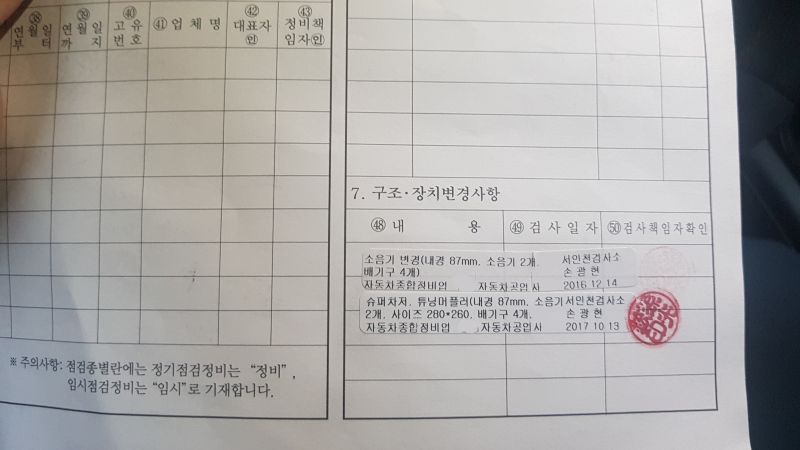 ㊳ ㊴ ㊵ ㊶ 업 체 명 ㊷ ㊸
연월일 연월일 고 유 대표자 정비책
부 터 까 지 번 호 ㊞ 임자㊞
※ 주의사항: 점검종별란에는 정기점검정비는 “정비”,
임시점검정비는 “임시”로 기재합니다.
7. 구조·장치변경사항
㊽ 내 용 ㊾ 검 사 일 자 ㊿ 검사책임자확인
소음기 변경(내경 87mm, 소음기 2개, 서인천검사소
배기구 4개) 손 광 현
자동차종합정비업 자동차공업사 2016.12.14
슈퍼차저, 튜닝머플러(내경 87mm, 소음기 서인천검사소
2개, 사이즈 280*260, 배기구 4개, 손 광 현
자동차종합정비업 자동차공업사 2017.10.13